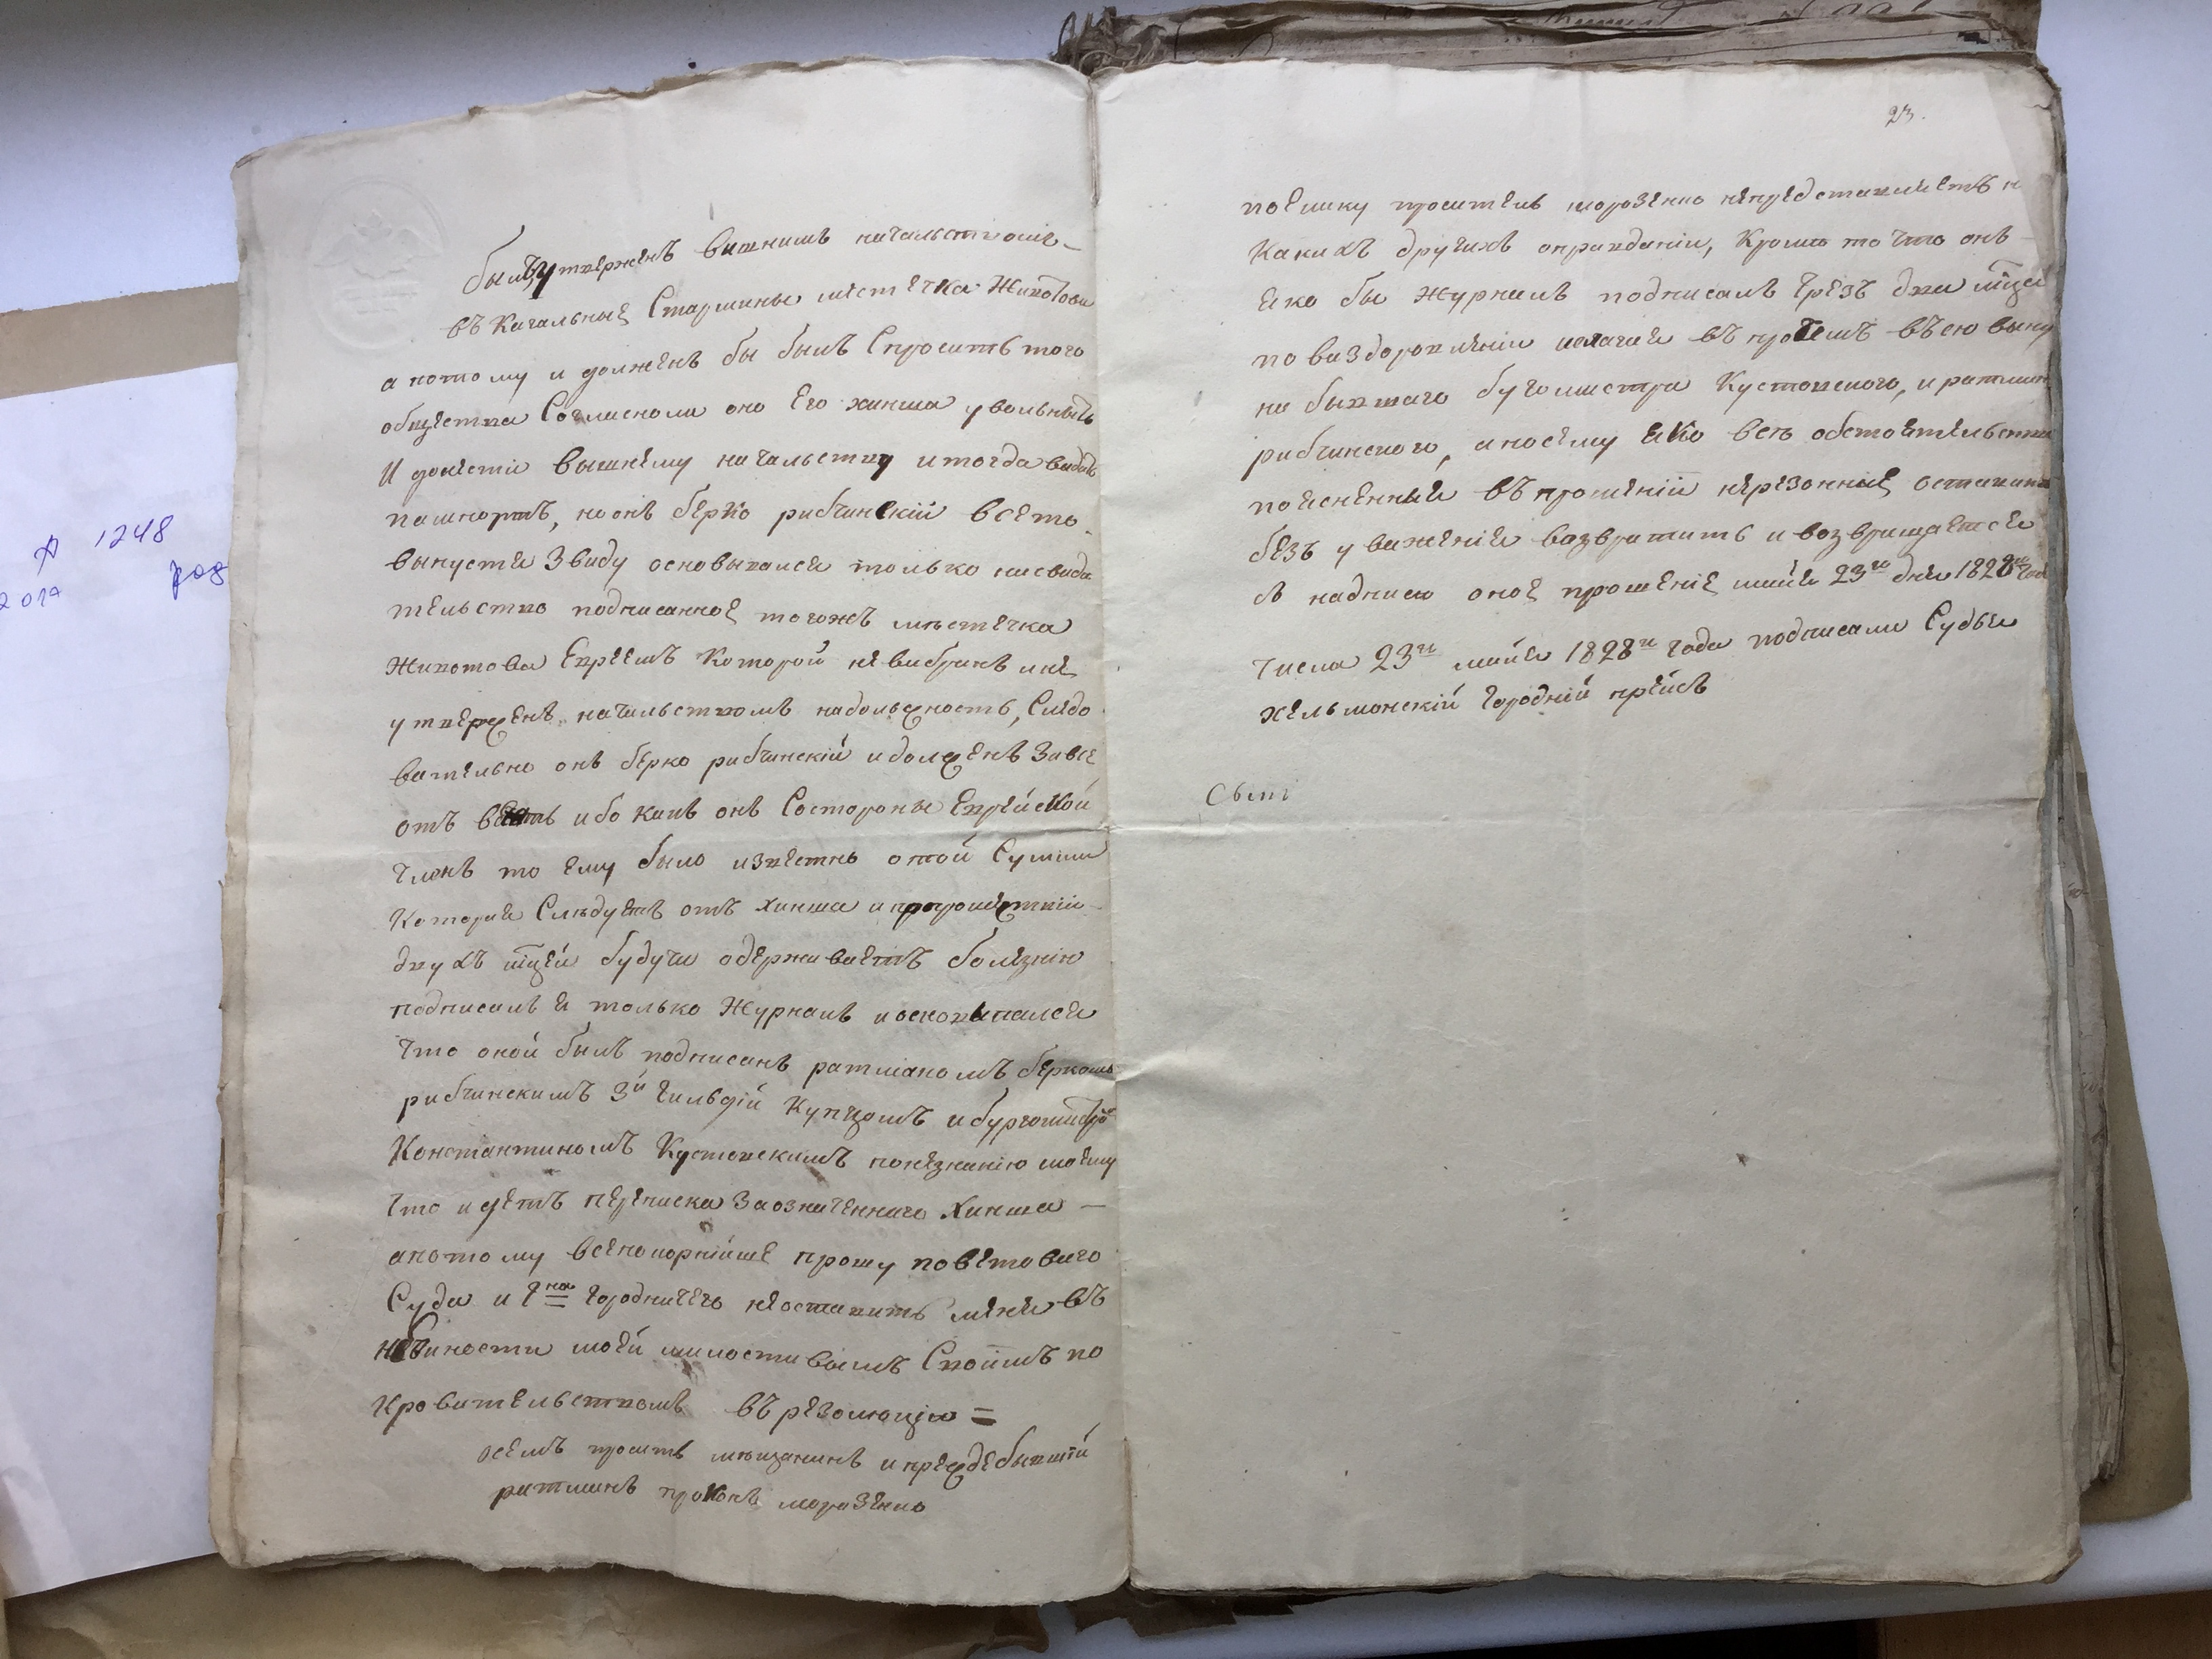 былъ утверженъ вишнимъ начальствомъ
въ Кагальные Старшины местечка Животова
а потому и долженъ бы былъ Спросить того
общества Согласноли оно Его хаима увольнить
И донести вышнему начальству и тогда видать
пашпортъ, но онъ берко рибчинскій всето
выпустя Звиду основывался только насвиде
тельство подписанное тогожъ местечка
Животова Евреемъ Которой невибранъ и не
утвержденъ начальствомъ надолжность, Следо
вательно онъ берко рибчинскій и долженъ Завсе
отъ ибо какъ онъ Состороны Еврейской
членъ то ему было известно отой Суммы
Которая Следуетъ отъ Хаима
двухъ мцей будучи одерживаетъ болезнію
подписалъ я только Журналъ и основывался
что оной былъ подписанъ ратманомъ беркомъ
рибчинскимъ 3й гильдій Купцомъ и бургомистромъ
Константиномъ Кустовскимъ понезнанію моему
что идетъ переписка Заозначеннаго Хаима
апотому всепокорнейше прошу поветоваго
Суда и Гна городничего неоставить меня въ
невиности моей милостивымъ Своимъ по
Кровительствомъ въ резолюціи =
осемъ проситъ мещанинъ и преждебывшій
ратманъ прокопъ морозенко
23.
поелику проситель морозенко непредставляетъ н
Какихъ другихъ оправданій, Кроме то что онъ
яко бы журналъ подписалъ Чрезъ два мця
по виздоровленіи въ протчемъ въсю вину
на бывшаго бугомистра Кустовского, и ратмана
рибчинского, апосему яко все обстоятельства
поясненные въ прошеніи нерезонные оставить
безъ уваженія возвратить и возвращается
съ надписю оное прошеніе мая 23го дня 1828го года
Числа 23го мая 1828го года подписали Судья
хельмонскій городній прейсъ